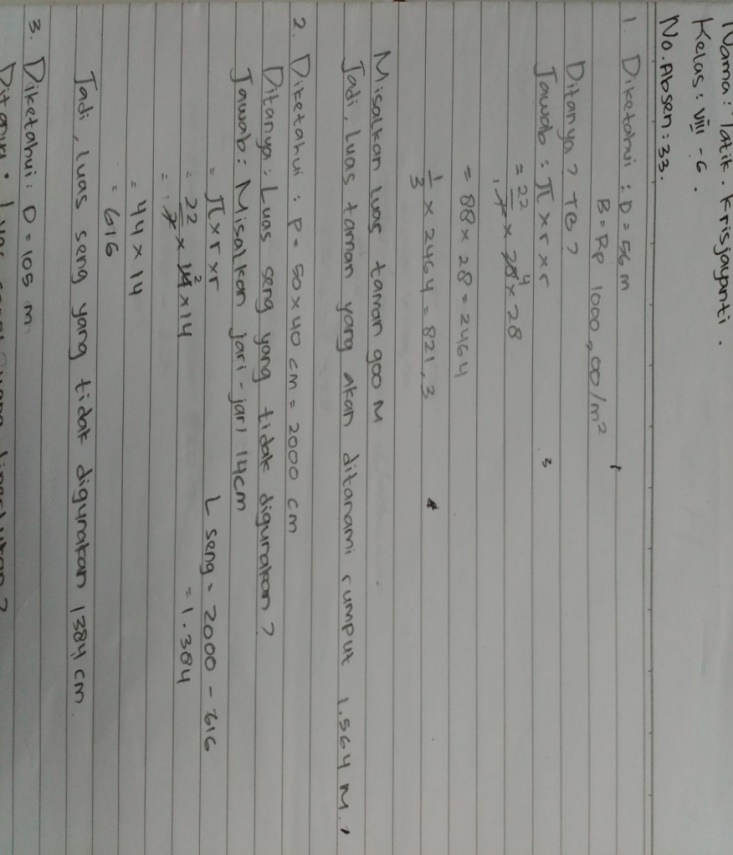 Nama : Tatik. Krisjayanti.
Kelas : VIII - G.
No. Absen : 33.
1. Diketahui : D = 56 m
B = Rp 1000,00/m²
Ditanya? TB?
Jawab : π × r × r
= 22/7 × 28 4 × 28
1
= 88 × 28 = 2464
1/3 × 2464 = 821,3
Misalkan luas taman 900 M
Jadi, luas taman yang akan ditanami rumput 1.564 M.
2. Diketahui : P = 50 × 40 cm = 2000 cm
Ditanya : Luas seng yang tidak digunakan?
Jawab : Misalkan jari-jari 14cm
= π × r × r L seng = 2000 - 616
= 22/7 × 14 2 × 14 = 1.384
= 1
= 44 × 14
= 616
Jadi, luas seng yang tidak digunakan 1384 cm.
3. Diketahui : D = 105 m
Ditanya :